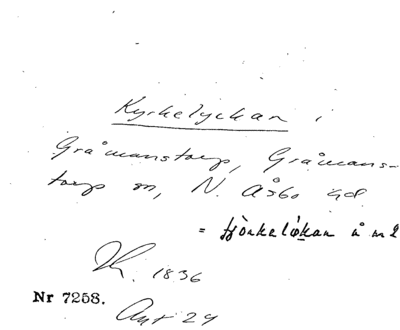 Kyrkelyckan i
Gråmanstorp, Gråmans-
torp sn, N. Åsbo hd
= tjörkelökan å n 2
1836
Nr 7258.
Ant 29